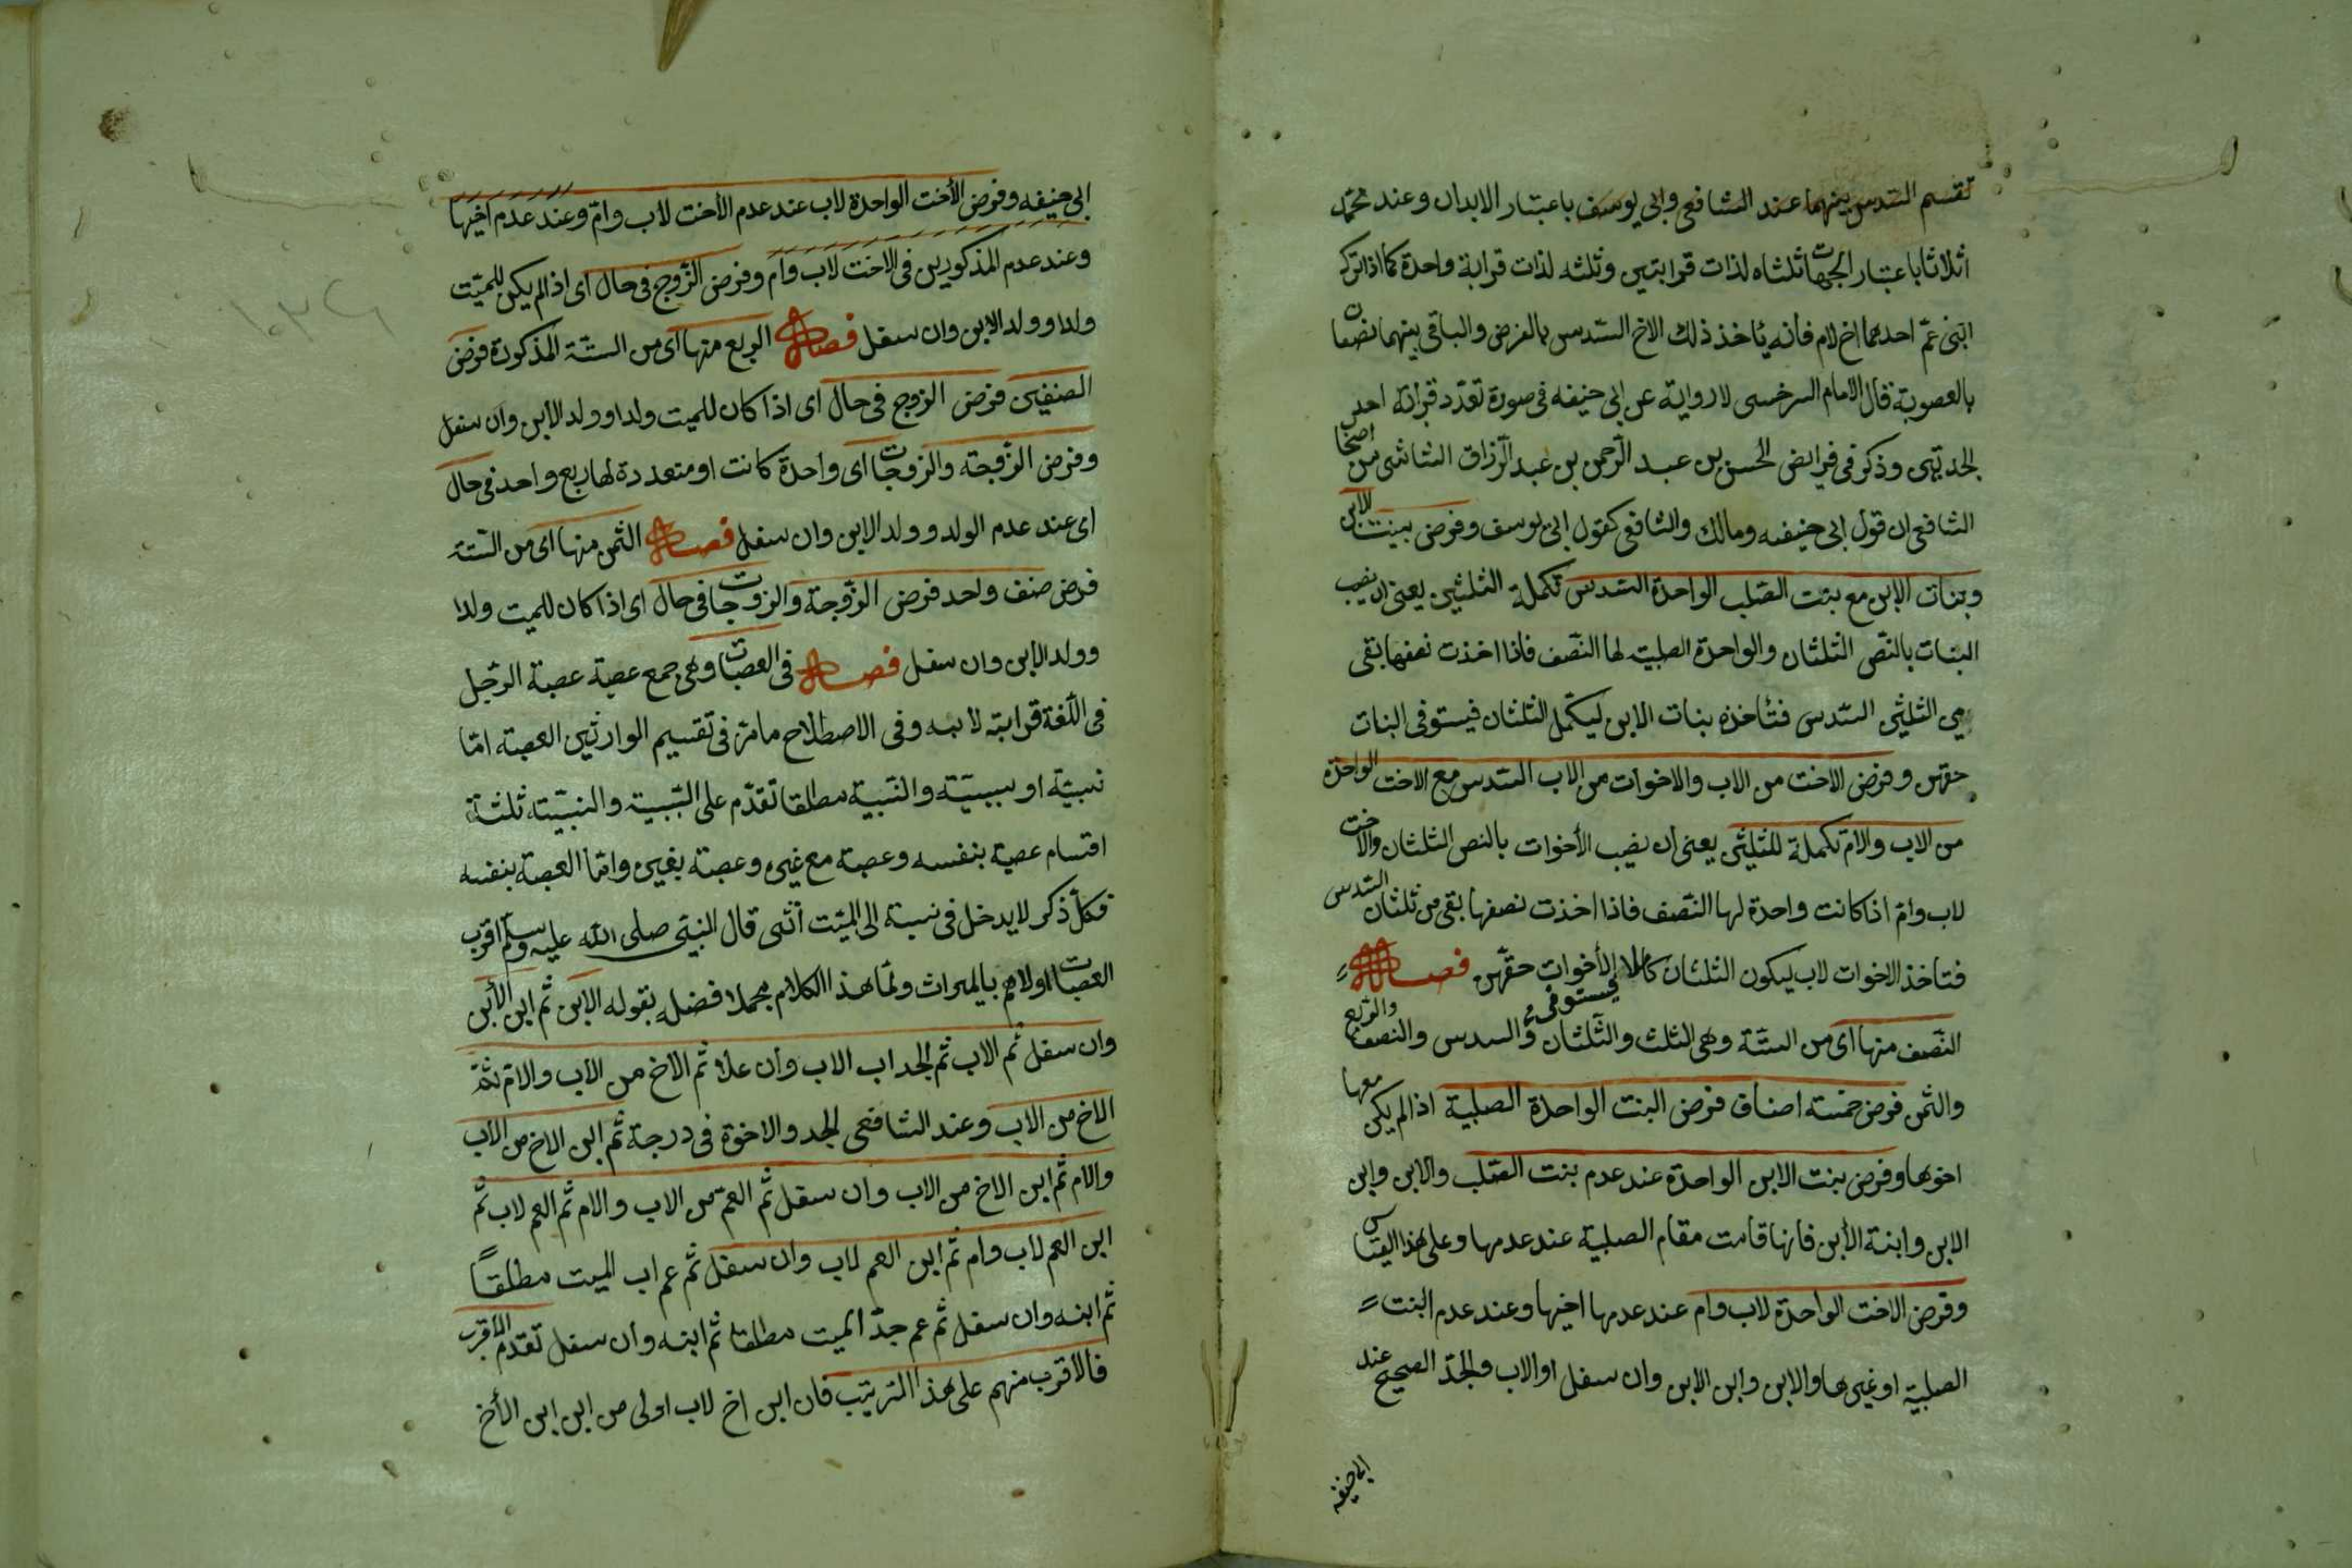 تقسم السدس بينهما عند الشافعي وابي يوسف باعتبار الابدان وعند محمد
اثلاثا باعتبار الجهات ثلثاه لذات قرابتين وثلثه لذات قرابة واحدة كما اذا ترك
ابنى عم احدهما اخ لام فانه ياخذ ذلك الاخ السدس بالفرض والباقى بينهما نصفان
بالعصوبة قال الامام السرخسى لا رواية عن ابى حنيفه فى صورة تعدد قرابة احدى
الجدتين وذكر فى فرايض الحسن بن عبد الرحمن بن عبد الرزاق الشاشى من اصحاب
الشافعى ان قول ابى حنيفه ومالك والشافعى كقول ابى يوسف وفرض بينت الابن
وبنات الابن مع بنت الصلب الواحدة السدس تكملة الثلثين يعنى ان نصيب
البنات بالنص الثلثان والواحدة الصلبية لها النصف فاذا اخذت نصفها بقى
من الثلثين السدس فتأخذه بنات الابن ليكمل الثلثان فيستوفى البنات
حقهن وفرض الاخت من الاب والاخوات من الاب السدس مع الاخت الواحدة
من الاب والام تكملة للثلثين يعنى ان نصيب الأخوات بالنص الثلثان والاخت
لاب وام اذا كانت واحدة لها النصف فاذا اخذت نصفها بقى من ثلثان السدس
فتاخذ الاخوات لاب ليكون الثلثان كاملا فيستوفى الأخوات حقهن فصل
النصف منها اى من الستة وهى الثلث والثلثان والسدس والنصف والربع
والثمن فرض خمسة اصناف فرض البنت الواحدة الصلبية اذا لم يكن معها
اخوها وفرض بنت الابن الواحدة عند عدم بنت الصلب والابن وابن
الابن وابنة الأبن فانها قامت مقام الصلبية عند عدمها وعلى هذا القياس
وفرض الاخت الواحدة لاب وام عند عدمها اخيها وعند عدم البنت
الصلبية او غيرها والابن وابن الابن وان سفل او الاب والجد الصحيح عند
ابى حنيفه
ابى حنيفه وفرض الأخت الواحدة لاب عند عدم الأخت لاب وام وعند عدم اخيها
وعند عدم المذكورين فى الاخت لاب وام وفرض الزوج فى حال اى اذا لم يكن للميت
ولد او ولد الابن وان سفل فصل الربع منها اى من الستة المذكورة فرض
الصنفين فرض الزوج فى حال اى اذا كان للميت ولد او ولد الأبن وان سفل
وفرض الزوجة والزوجات اى واحدة كانت او متعددة لها ربع واحد فى حال
اى عند عدم الولد وولد الابن وان سفل فصل الثمن منها اى من الستة
فرض صنف واحد فرض الزوجة والزوجات فى حال اى اذا كان للميت ولد
وولد الابن وان سفل فصل فى العصبات وهى جمع عصبة عصبة الرجل
فى اللغة قرابته لابيه وفى الاصطلاح ما مر فى تقسيم الوارثين العصبة اما
نسبية او سببية والنسبية مطلقا تقدم على السببية والنسبية ثلثة
اقسام عصبة بنفسه وعصبة مع غيره وعصبة بغيره واما العصبة بنفسه
فكل ذكر لا يدخل فى نسبة الى الميت أنثى قال النبى صلى الله عليه وسلم اقرب
العصبات اولاهم بالميراث ولما هذا الكلام مجملا فضله بقوله الابن ثم ابن الأبن
وان سفل ثم الاب ثم الجد اب الاب وان علا ثم الاخ من الاب والام ثم
الاخ من الاب وعند الشافعى الجد والاخوة فى درجة ثم ابن الاخ من الاب
والام ثم ابن الاخ من الاب وان سفل ثم العم من الاب والام ثم العم لاب ثم
ابن العم لاب وام ثم ابن العم لاب وان سفل ثم عم اب الميت مطلقاً
ثم ابنه وان سفل ثم عم جد الميت مطلقا ثم ابنه وان سفل تقدم الاقرب
فالاقرب منهم على هذا الترتيب فان ابن اخ لاب اولى من ابن ابن الأخ